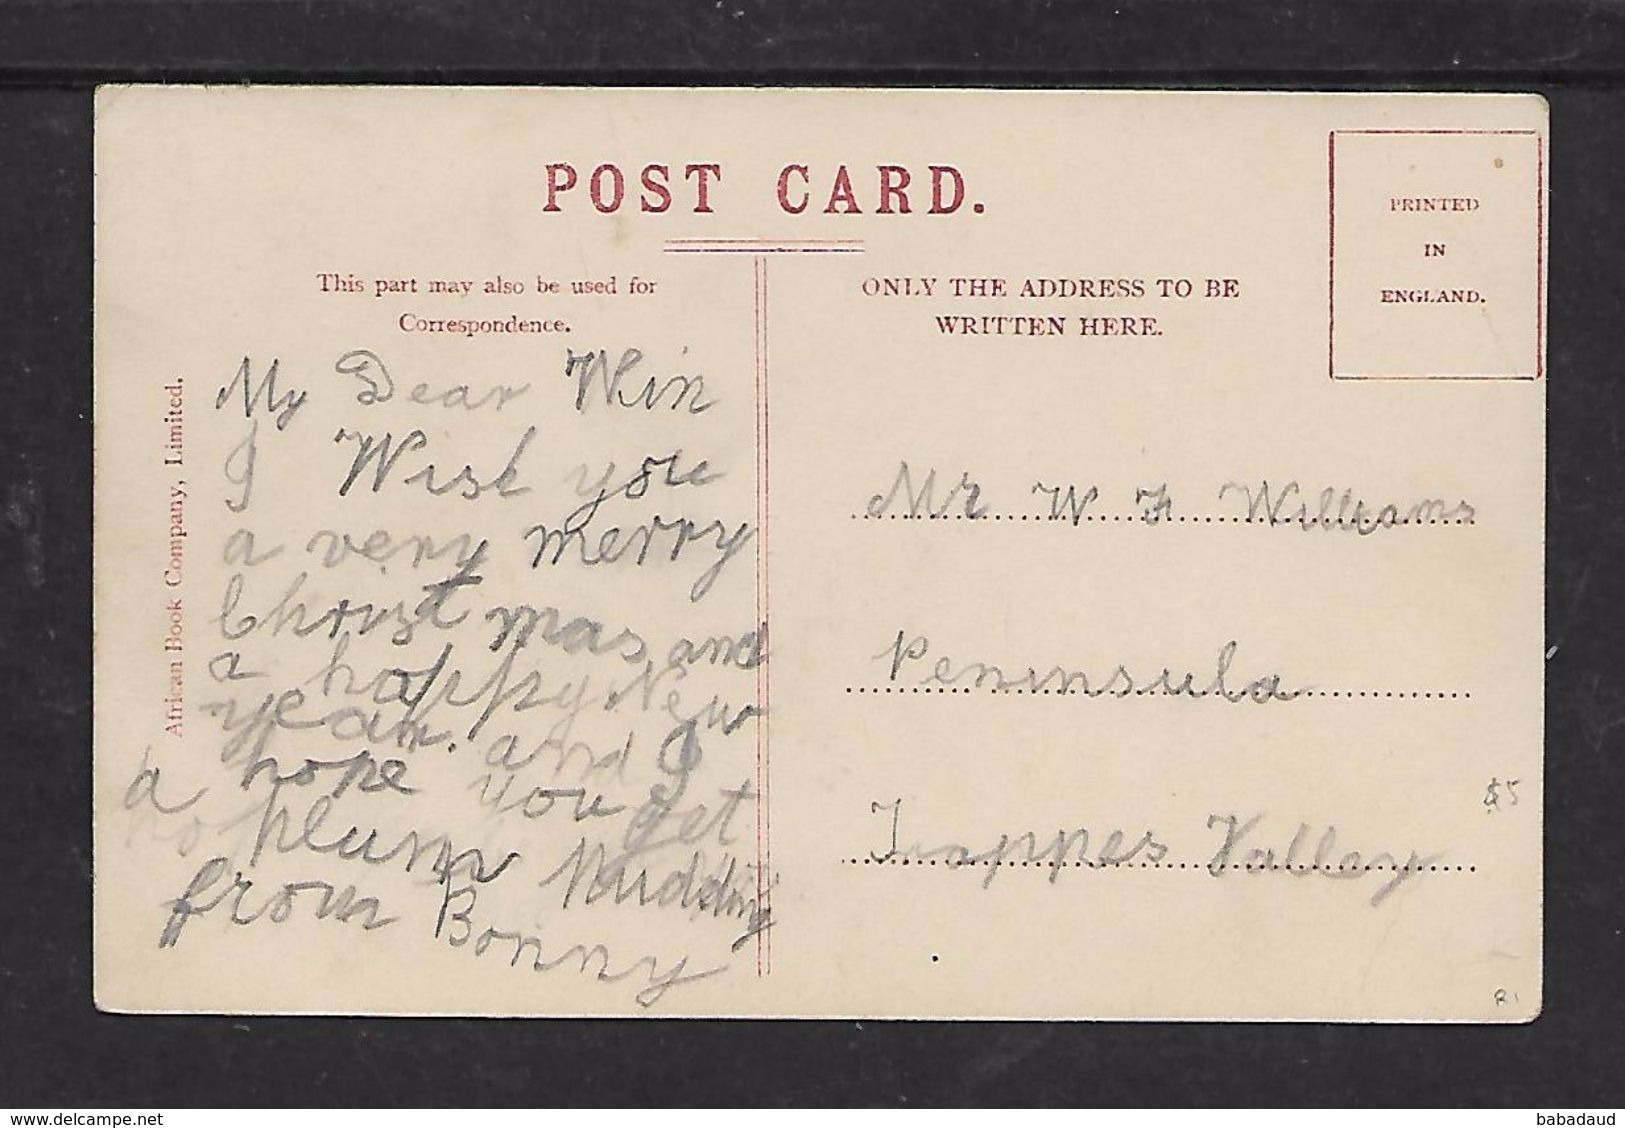 POST CARD.
This part may also be used for
Correspondence.
ONLY THE ADDRESS TO BE
WRITTEN HERE.
PRINTED
IN
ENGLAND.
African Book Company, Limited.
My Dear Win
I Wish you
a very merry
Christ mas and
a happy New
year. and I
hope you get
a plum Pudding
from Bonny
Mr W F Williams
Peninsula
Trappes Valley
$5
R1
delcampe.net
babadaud